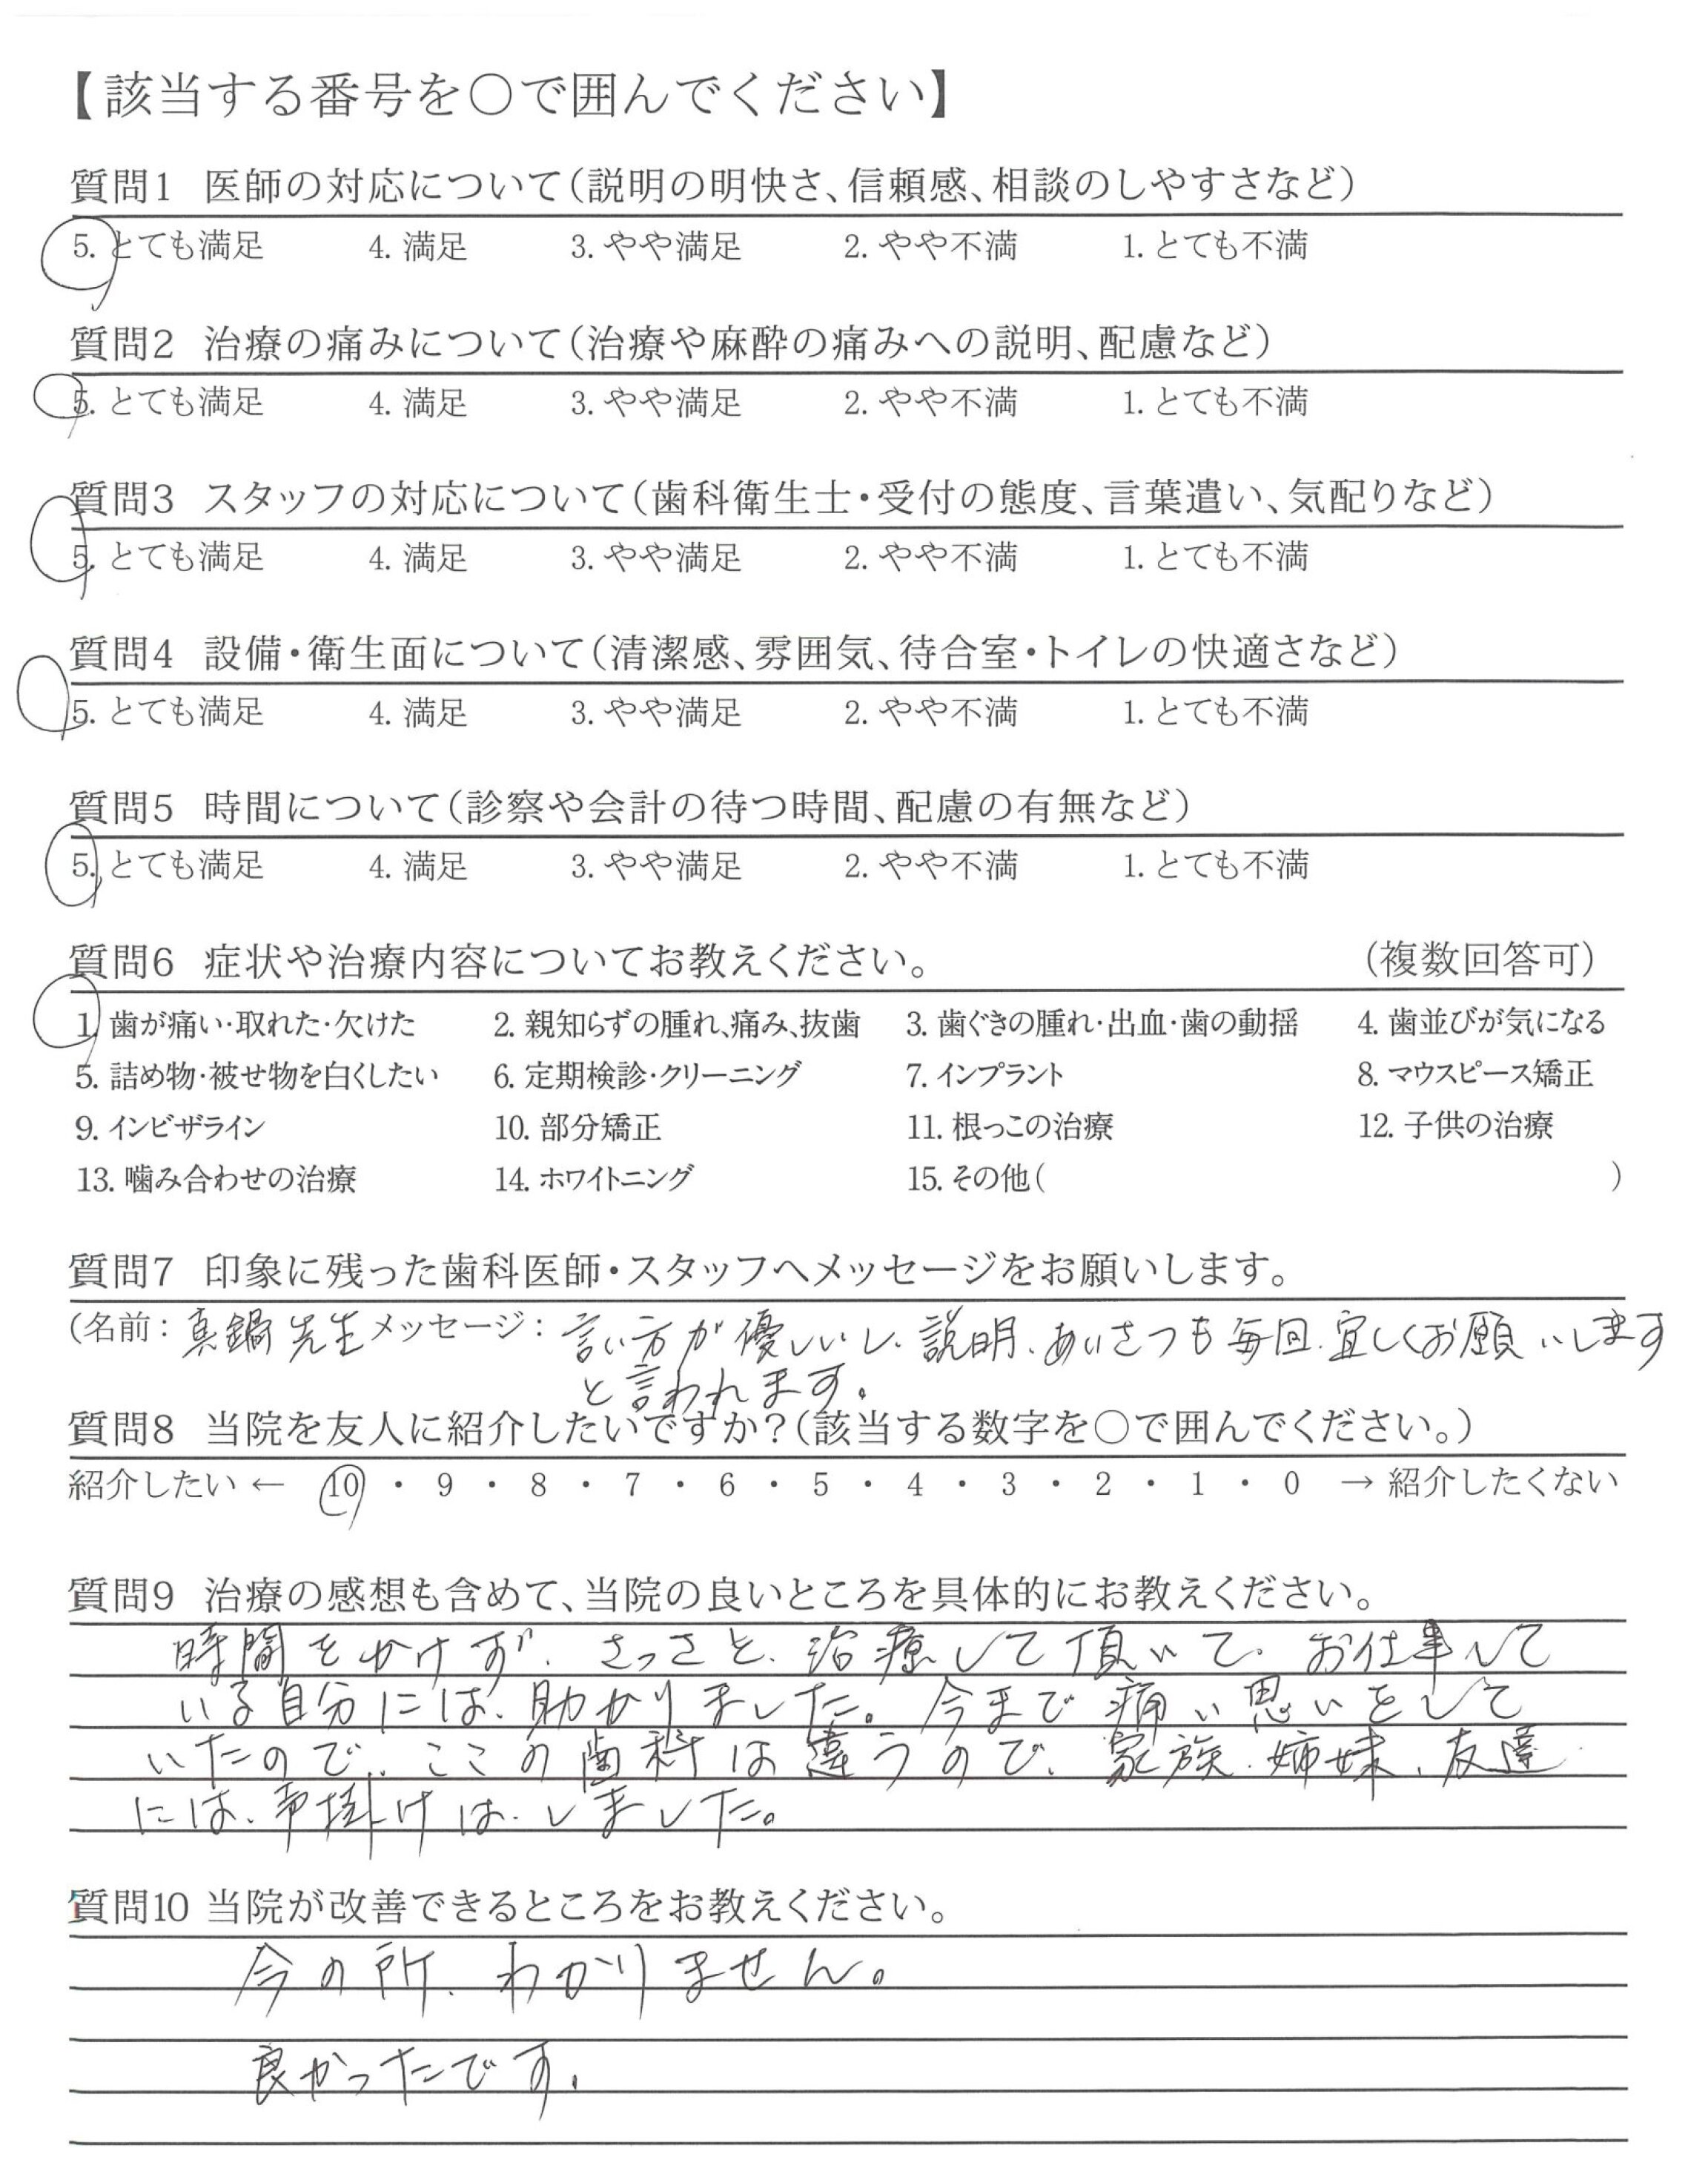 【該当する番号を○で囲んでください】
質問1 医師の対応について（説明の明快さ、信頼感、相談のしやすさなど）
5. とても満足 4. 満足 3. やや満足 2. やや不満 1. とても不満
質問2 治療の痛みについて（治療や麻酔の痛みへの説明、配慮など）
5. とても満足 4. 満足 3. やや満足 2. やや不満 1. とても不満
質問3 スタッフの対応について（歯科衛生士・受付の態度、言葉遣い、気配りなど）
5. とても満足 4. 満足 3. やや満足 2. やや不満 1. とても不満
質問4 設備・衛生面について（清潔感、雰囲気、待合室・トイレの快適さなど）
5. とても満足 4. 満足 3. やや満足 2. やや不満 1. とても不満
質問5 時間について（診察や会計の待つ時間、配慮の有無など）
5. とても満足 4. 満足 3. やや満足 2. やや不満 1. とても不満
質問6 症状や治療内容についてお教えください。 （複数回答可）
1. 歯が痛い・取れた・欠けた 2. 親知らずの腫れ、痛み、抜歯 3. 歯ぐきの腫れ・出血・歯の動揺 4. 歯並びが気になる
5. 詰め物・被せ物を白くしたい 6. 定期検診・クリーニング 7. インプラント 8. マウスピース矯正
9. インビザライン 10. 部分矯正 11. 根っこの治療 12. 子供の治療
13. 噛み合わせの治療 14. ホワイトニング 15. その他（ ）
質問7 印象に残った歯科医師・スタッフへメッセージをお願いします。
（名前：真鍋先生 メッセージ：言い方が優しいし、説明、あいさつも毎回、宜しくお願いします
と言われます。
質問8 当院を友人に紹介したいですか？（該当する数字を○で囲んでください。）
紹介したい ← 10 ・ 9 ・ 8 ・ 7 ・ 6 ・ 5 ・ 4 ・ 3 ・ 2 ・ 1 ・ 0 → 紹介したくない
質問9 治療の感想も含めて、当院の良いところを具体的にお教えください。
時間をかけず、さっさと、治療して頂いて、お仕事して
いる自分には、助かりました。今まで痛い思いをして
いたので、ここの歯科は違うので、家族、姉妹、友達
には、声掛けは、しました。
質問10 当院が改善できるところをお教えください。
今の所、わかりません。
良かったです。